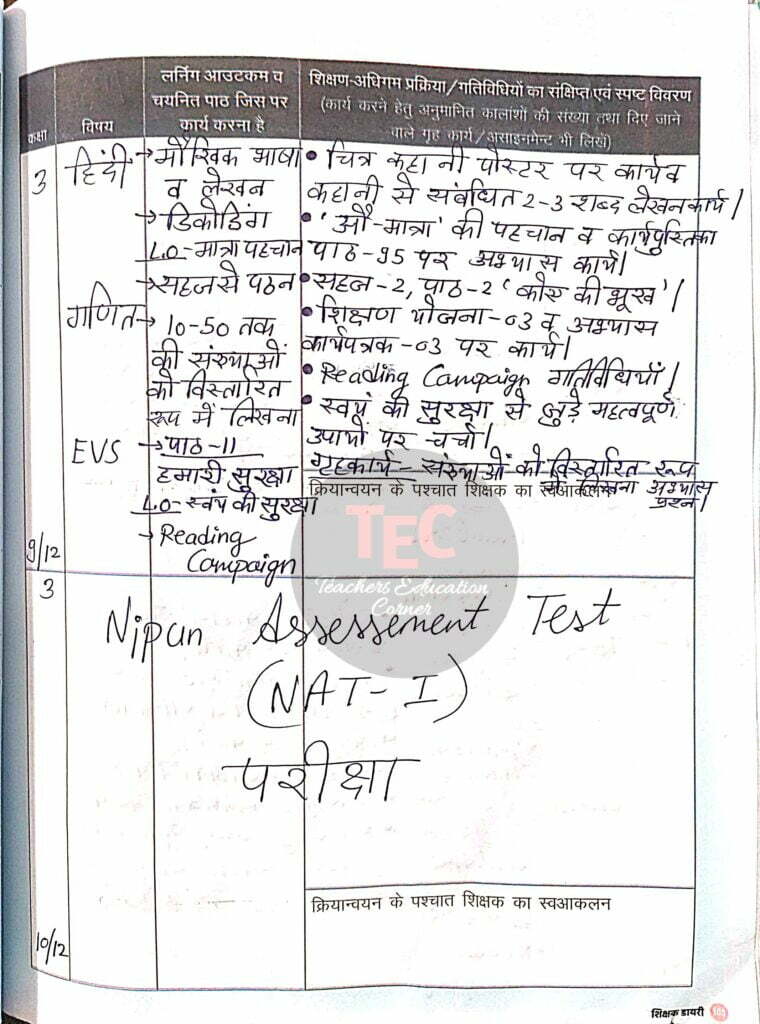 कक्षा
विषय
लर्निंग आउटकम व
चयनित पाठ जिस पर
कार्य करना है
शिक्षण-अधिगम प्रक्रिया/गतिविधियों का संक्षिप्त एवं स्पष्ट विवरण
(कार्य करने हेतु अनुमानित कालांशों की संख्या तथा दिए जाने
वाले गृह कार्य/असाइनमेन्ट भी लिखें)
3
हिंदी
→ मौखिक भाषा
व लेखन
→ डिकोडिंग
L.O-मात्रा पहचान
→ सहज से पठन
गणित
→ 10-50 तक
की संख्याओं
को विस्तारित
रूप में लिखना
EVS
→ पाठ-11
हमारी सुरक्षा
L.O- स्वंय की सुरक्षा
→ Reading
Campaign
9/12
• चित्र कहानी पोस्टर पर कार्य व
कहानी से संबंधित 2-3 शब्द लेखन कार्य।
• 'औ-मात्रा' की पहचान व कार्यपुस्तिका
पाठ-95 पर अभ्यास कार्य।
• सहज-2, पाठ-2 'की भूख'।
• शिक्षण योजना-03 व अभ्यास
कार्यपत्रक-03 पर कार्य।
• Reading Campaign गतिविधियाँ।
• स्वयं की सुरक्षा से जुड़े महत्वपूर्ण
उपायों पर चर्चा।
गृहकार्य- संख्याओं को विस्तारित रूप
में लिखना अभ्यास
प्रश्न।
क्रियान्वयन के पश्चात शिक्षक का स्वआकलन
TEC
Teachers Education
Corner
3
Nipun Assessement Test
(NAT-I)
परीक्षा
क्रियान्वयन के पश्चात शिक्षक का स्वआकलन
10/12
शिक्षक डायरी 105